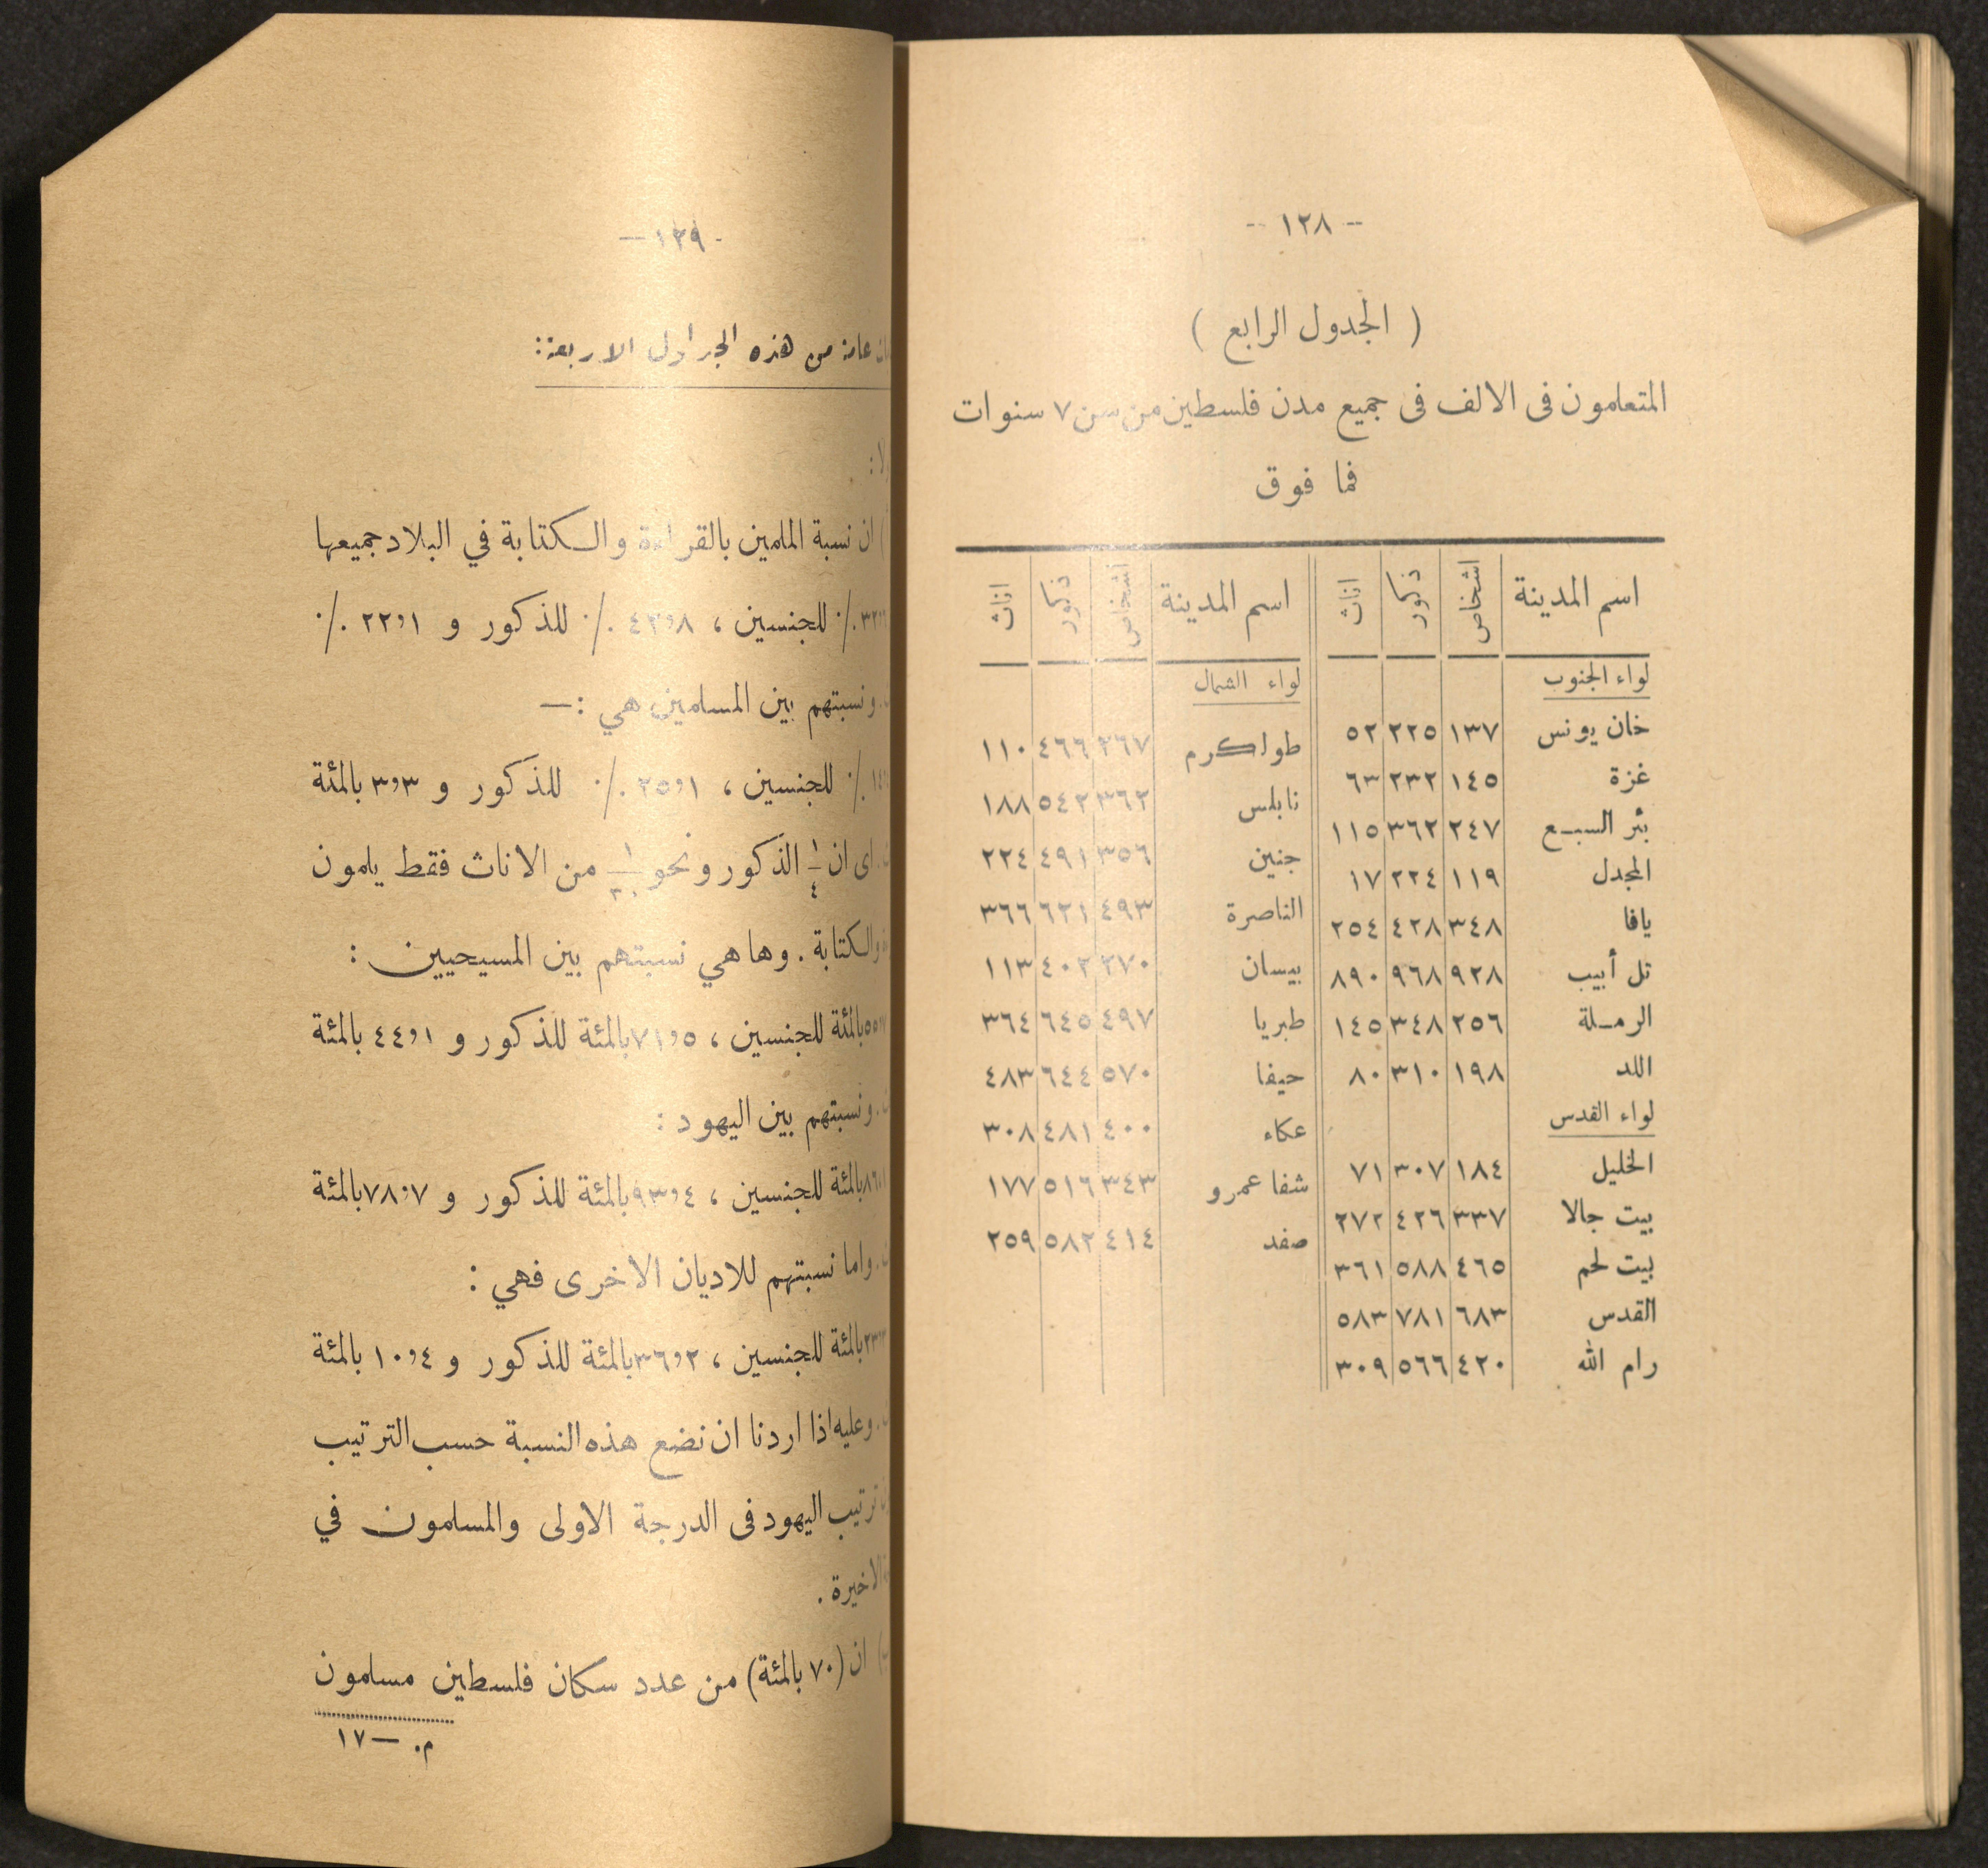 -- ١٢٨ --
( الجدول الرابع )
المتعلمون فى الالف فى جميع مدن فلسطين من سن ٧ سنوات
فما فوق
اسم المدينة اشخاص ذكور اناث اسم المدينة اشخاص ذكور اناث
لواء الجنوب لواء الشمال
خان يونس ١٣٧ ٢٢٥ ٥٢ طولكرم ٢٦٧ ٤٦٦ ١١٠
غزة ١٤٥ ٢٣٢ ٦٣ نابلس ٣٦٢ ٥٤٢ ١٨٨
بئر السبع ٢٤٧ ٣٦٢ ١١٥ جنين ٣٥٦ ٤٩١ ٢٢٤
المجدل ١١٩ ٢٢٤ ١٧ الناصرة ٤٩٣ ٦٢١ ٣٦٦
يافا ٣٤٨ ٤٢٨ ٢٥٤ بيسان ٢٧٠ ٤٠٢ ١١٣
تل أبيب ٩٢٨ ٩٦٨ ٨٩٠ طبريا ٤٩٧ ٦٤٥ ٣٦٤
الرملة ٢٥٦ ٣٤٨ ١٤٥ حيفا ٥٧٠ ٦٤٤ ٤٨٣
اللد ١٩٨ ٣١٠ ٨٠ عكاء ٤٠٠ ٤٨١ ٣٠٨
لواء القدس شفا عمرو ٣٤٣ ٥١٦ ١٧٧
الخليل ١٨٤ ٣٠٧ ٧١ صفد ٤١٤ ٥٨٢ ٢٥٩
بيت جالا ٣٣٧ ٤٢٦ ٢٧٢
بيت لحم ٤٦٥ ٥٨٨ ٣٦١
القدس ٦٨٣ ٧٨١ ٥٨٣
رام الله ٤٢٠ ٥٦٦ ٣٠٩
- ١٢٩ —
عامة من هذه الجداول الاربعة:
ان نسبة الملمين بالقراءة والكتابة في البلاد جميعها
٪ للجنسين ، ٤٢,٨ ٪ للذكور و ٢٢,١ ٪
ونسبتهم بين المسلمين هي :—
٪ للجنسين ، ٢٥,١ ٪ للذكور و ٣,٣ بالمئة
اى ان ١/٤ الذكور ونحو ١/٣٠ من الاناث فقط يلمون
والكتابة . وها هي نسبتهم بين المسيحيين :
بالمئة للجنسين ، ٧١,٥ بالمئة للذكور و ٤٤,١ بالمئة
ونسبتهم بين اليهود :
بالمئة للجنسين ، ٩٣,٤ بالمئة للذكور و ٧٨,٧ بالمئة
واما نسبتهم للاديان الاخرى فهي :
بالمئة للجنسين ، ٣٦,٢ بالمئة للذكور و ١٠,٤ بالمئة
وعليه اذا اردنا ان نضع هذه النسبة حسب الترتيب
ترتيب اليهود فى الدرجة الاولى والمسلمون في
الاخيرة .
ان (٧٠ بالمئة) من عدد سكان فلسطين مسلمون
م. — ١٧